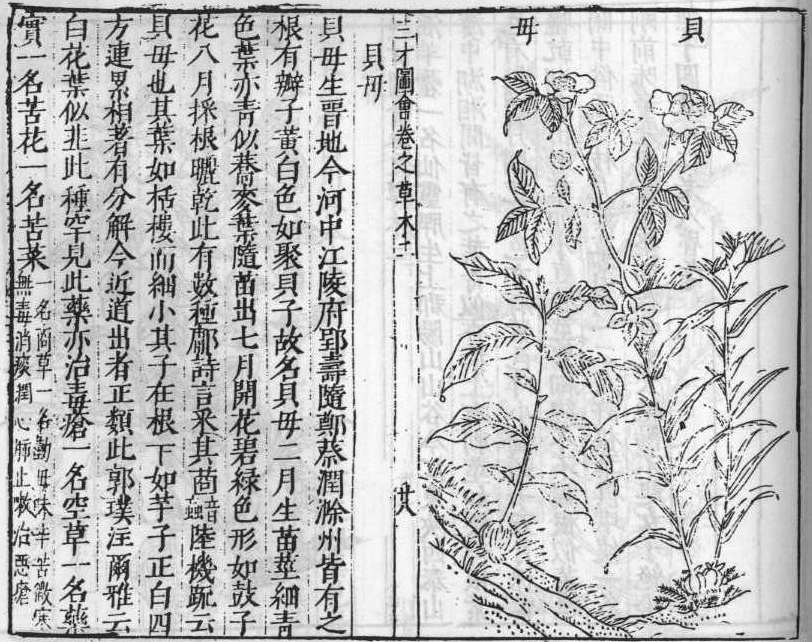 貝
母
三才圖會卷之草木十一
廿八
貝母
貝母生晉地今河中江陵府郢壽隨鄭蔡潤滁州皆有之
根有瓣子黃白色如聚貝子故名貝母二月生苗莖細青
色葉亦青似蕎麥葉隨苗出七月開花碧綠色形如鼓子
花八月採根曬乾此有數種鄘詩言采其莔音蝱陸機疏云
貝母也其葉如栝樓而細小其子在根下如芋子正白四
方連累相著有分解今近道出者正類此郭璞注爾雅云
白花葉似韭此種罕見此藥亦治毒瘡一名空草一名藥
實一名苦花一名苦菜一名商草一名勤母味辛苦微寒
無毒消痰潤心肺止嗽治惡瘡